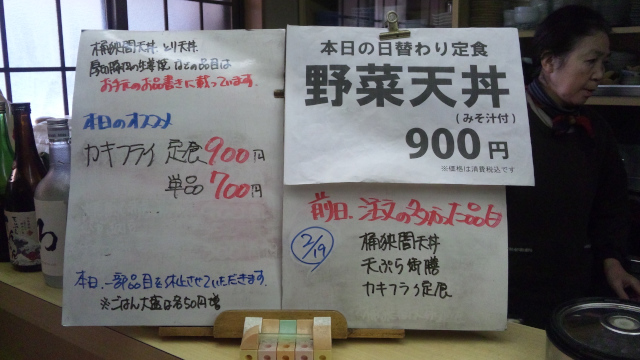 桶狭間天丼 とり天丼
の生姜焼 などの品目は
お手元のお品書きに載っています。
本日のオススメ
カキフライ 定食 900円
単品 700円
本日、一部品目を休止させていただきます。
※ごはん大盛は各50円増
本日の日替わり定食
野菜天丼
(みそ汁付)
900円
※価格は消費税込です
前日、注文の多かった品目
2/19
桶狭間天丼
天ぷら御膳
カキフライ定食